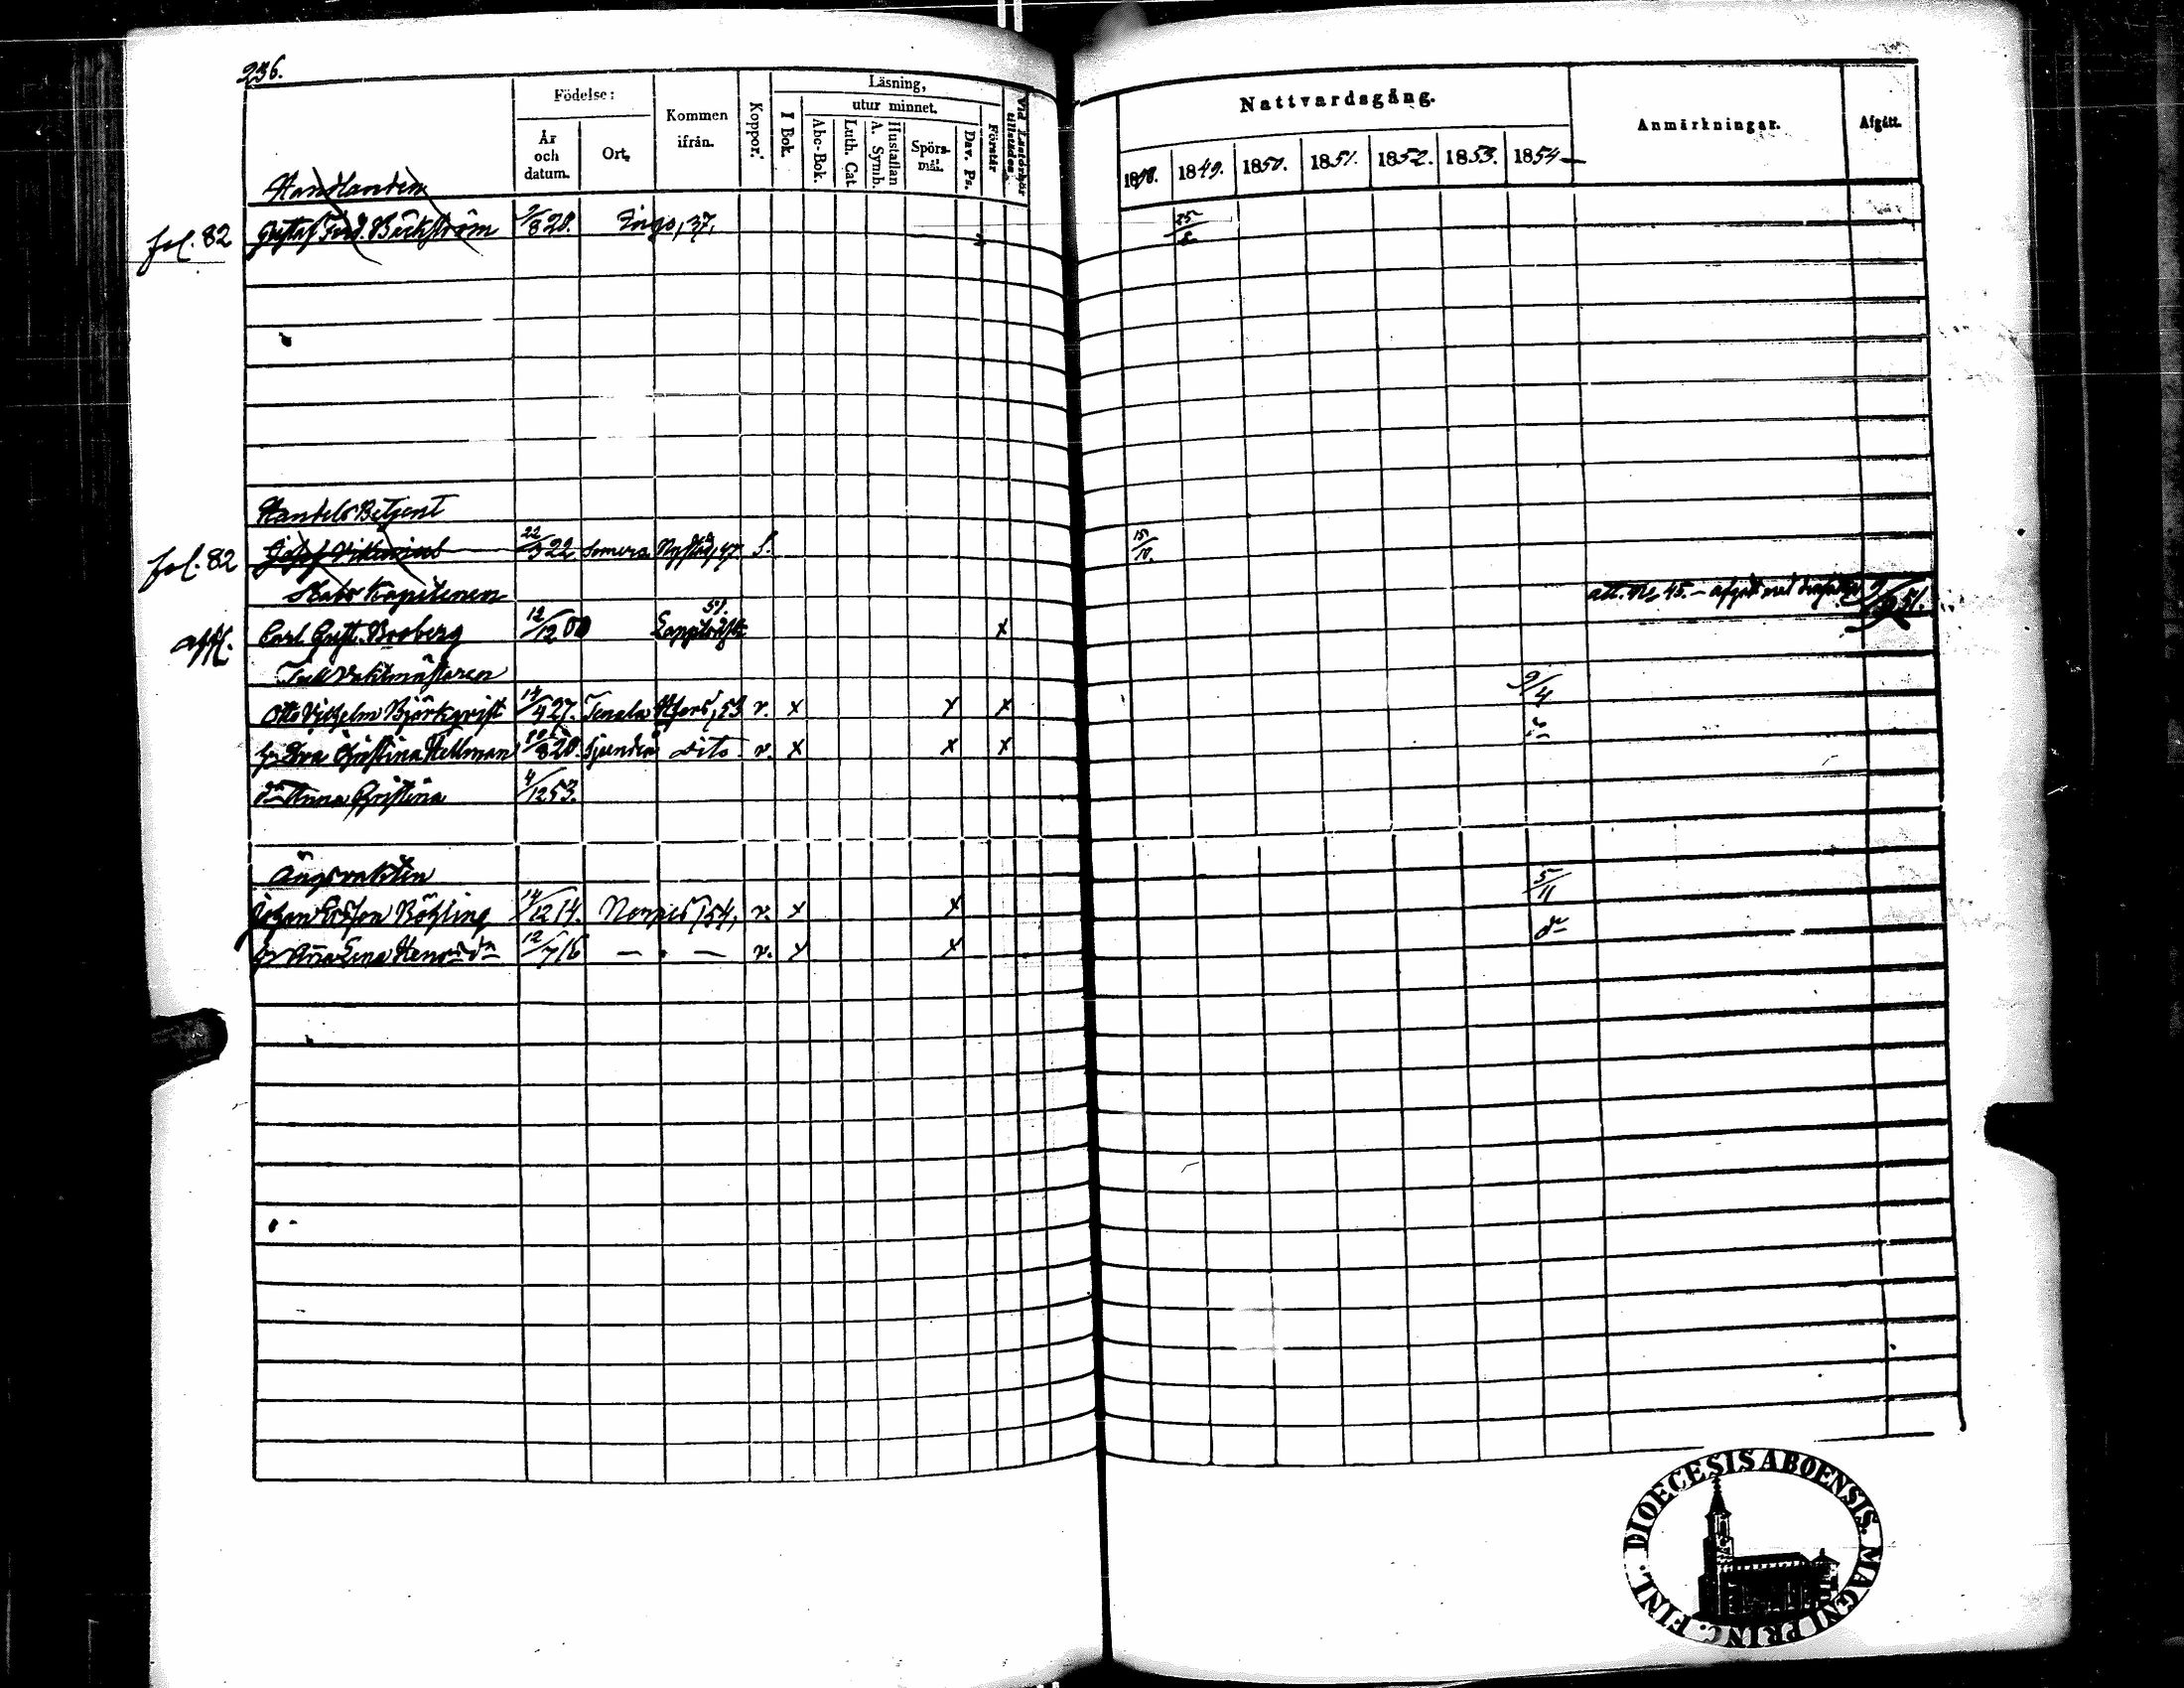 236.
Födelse: Kommen ifrån. Koppor. Läsning, Vid Läsförhör tillstädes
År och datum. Ort. I Bok. utur minnet. Förstår
Abc-Bok. Luth. Cat. A. Symb. Hustaflan Spörsmål. Dav. Ps.
Nattvardsgång. Anmärkningar. Afgått.
1848. 1849. 1850. 1851. 1852. 1853. 1854
Handlanden
fol. 82 Gustaf Ferd. Bäckström 9/8 28. Ingo, 37. 25/8
Handels Betjent
fol. 82 Josef 22/3 22 Somero Nystad, 47 S. 15/10.
Stabs Kapitenen att. No 45. - afgått med
51.
affl. Carl Gust. Broberg 12/12 00 x 51.
Tull Vaktmästaren
Otto Vilhelm Björkqvist 14/4 27. Tenala Hfors, 53 v. x x x 9/4
h. Eva Christina Hellman 8 28. dito v. x x x
dr Anna Christina 4/12 53.
Ångvakten
Johan Ersson Böhling 14/12 14. 54, v. x x 5/11
h. Lena Henr. dr 12/7 16 — . — v. x x do
DIOECESIS ABOENSIS. MAGNI PRINC. FINL.